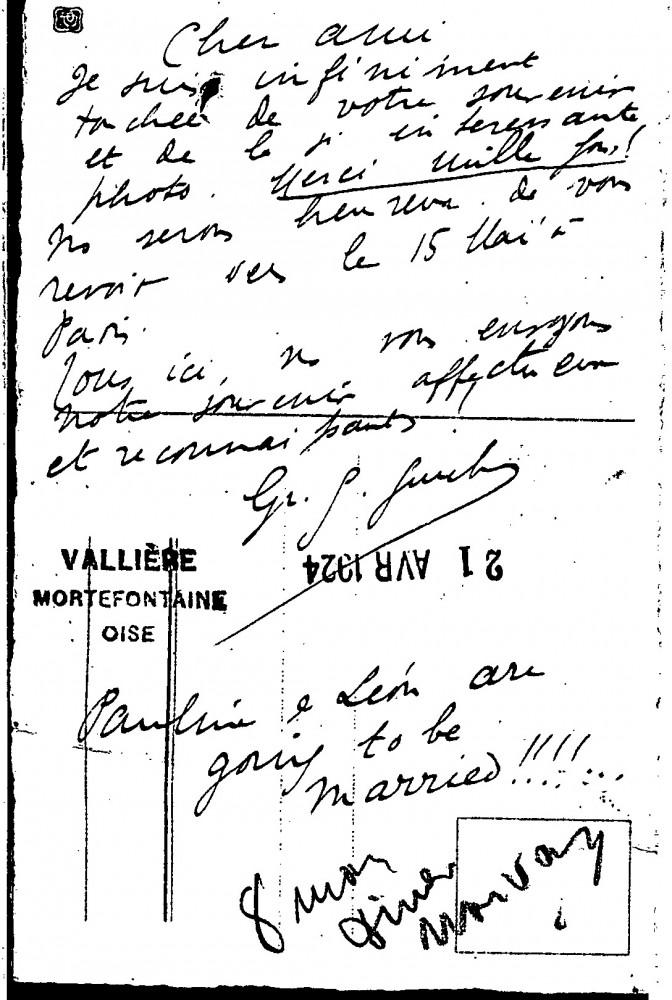 Cher ami
Je suis infiniment
touchée de votre souvenir
et de la si intéressante
photo. Merci mille fois!
ns serons heureux de vous
revoir vers le 15 Mai à
Paris.
Tous ici, ns vous envoyons
notre souvenir affectueux
et reconnaissants
Gr. G.
VALLIÈRE
MORTEFONTAINE
OISE
21 AVR 1924
Pauline & Léon are
going to be
married!!!!
8 mai
diner